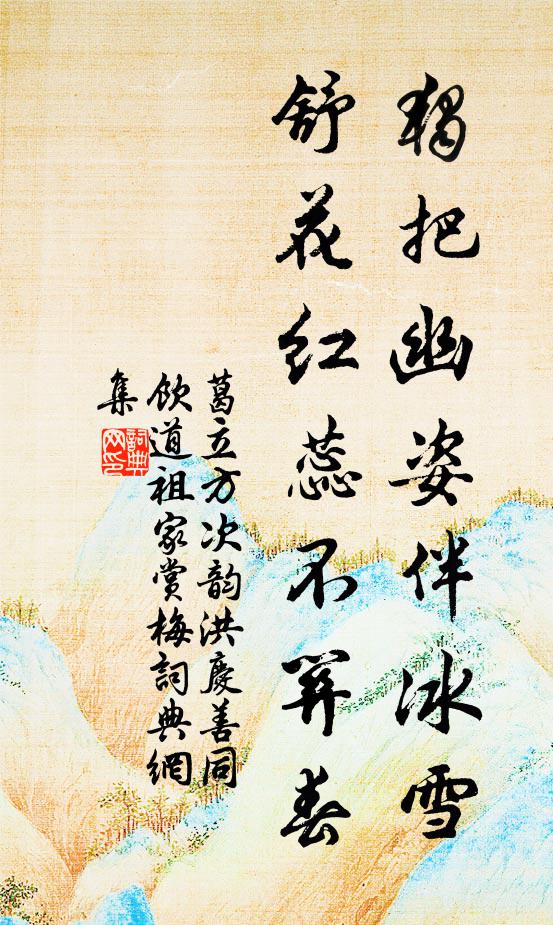 獨把幽姿伴冰雪
舒花红蕊不春
葛立方次韵洪慶善同
飲道祖家賞梅詞典網
集
詞典
网印